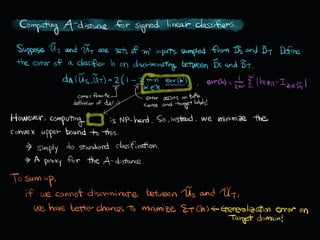 Computing A-distance for signed linear classifiers.
Suppose Ũs and ŨT are sets of m' inputs sampled from D̃s and D̃T. Define
the error of a classifier h on discriminating between D̃s and D̃T.
dA(Ũs, ŨT) = 2(1 - 2 min h∈H err(h))
err(h) = 1/2m' Σ |h(xi) - I xi∈D̃s|
comes from the definition of dA
error exists on both source and target labels!
However, computing is NP-hard. So, instead, we minimize the
convex upper bound to this.
→ simply do standard classification.
→ A proxy for the A-distance.
To sum up,
if we cannot discriminate between Ũs and ŨT,
we have better chances to minimize ΣT(h) ← Generalization error on
Target domain!